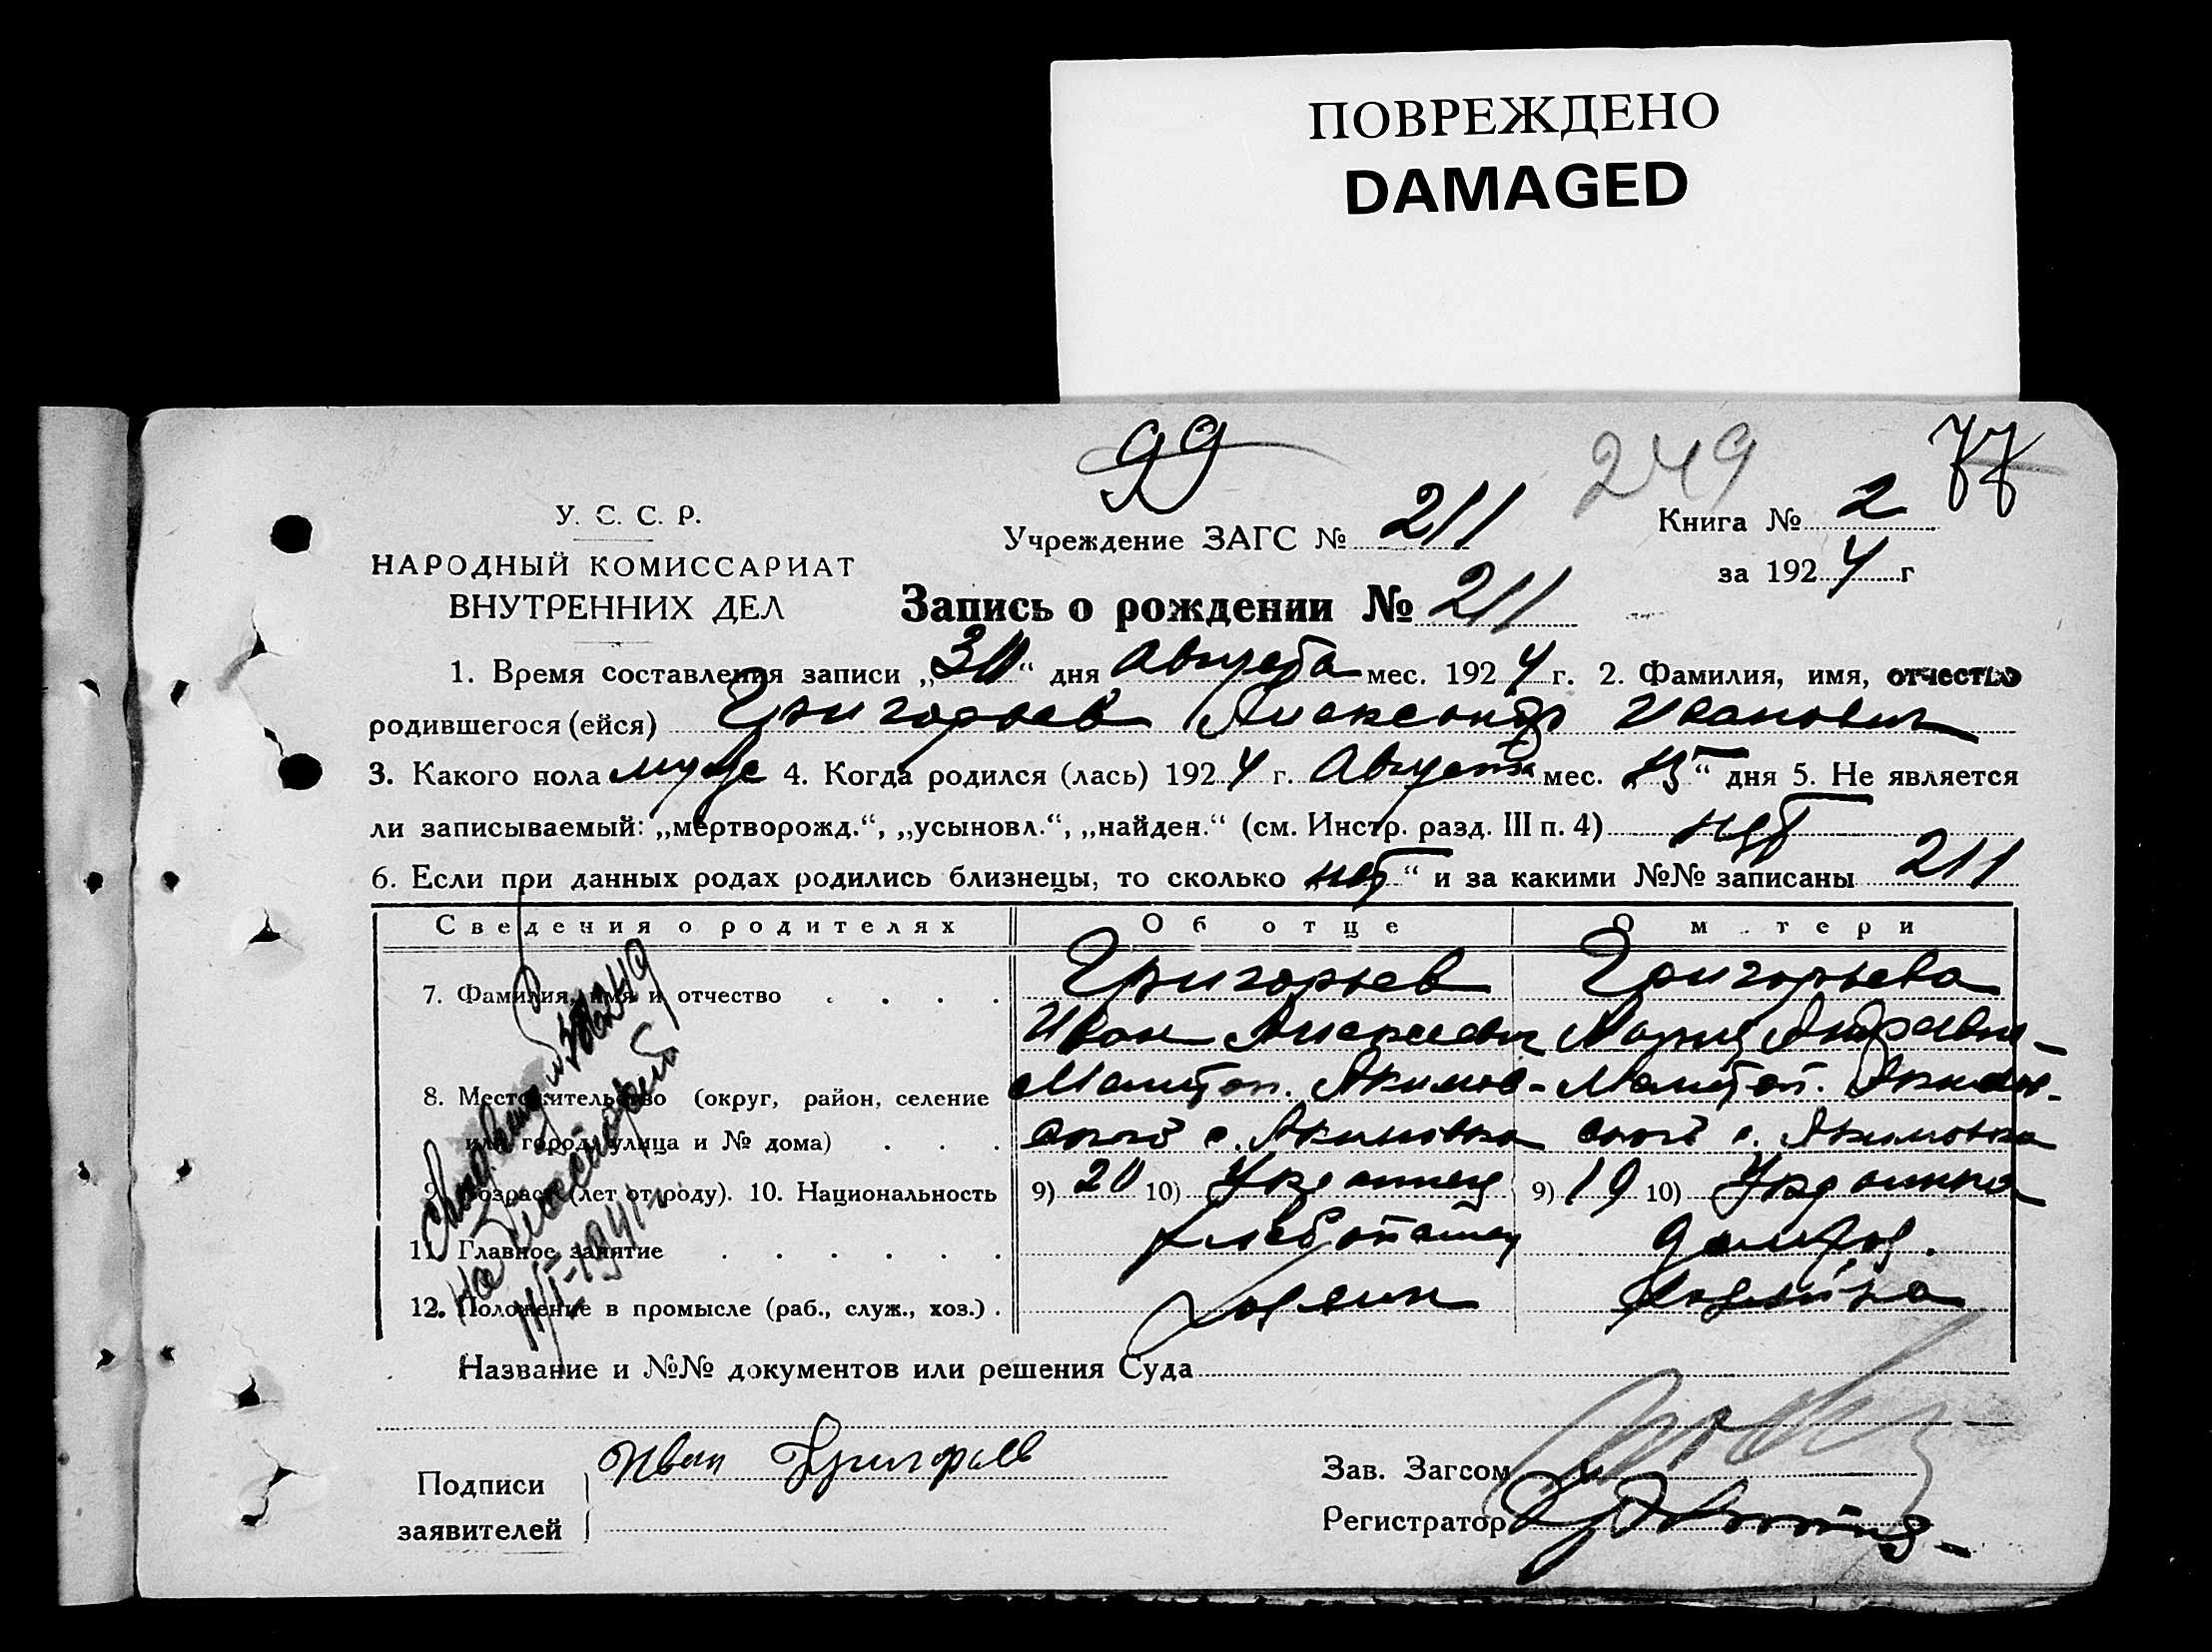 ПОВРЕЖДЕНО
DAMAGED
99
249
77
У. С. С. Р.
НАРОДНЫЙ КОМИССАРИАТ
ВНУТРЕННИХ ДЕЛ
Учреждение ЗАГС № 211
Книга № 2
за 1924 г
Запись о рождении № 211
1. Время составления записи „30“ дня Августа мес. 1924 г. 2. Фамилия, имя, отчество
родившегося (ейся) Григорьев Александр Иванович
3. Какого пола муж 4. Когда родился (лась) 1924 г. Августа мес. 15“ дня 5. Не является
ли записываемый: „мертворожд.“, „усыновл.“, „найден.“ (см. Инстр. разд. III п. 4) нет
6. Если при данных родах родились близнецы, то сколько нет“ и за какими №№ записаны 211
Сведения о родителях Об отце О м тери
7. Фамилия, имя и отчество . . . . Григорьев Григорьева
Иван Алексеевич Мария Андреевн-
8. Местожительство (округ, район, селение Мелитоп. Акимов- Мелитоп. Акимов-
или город, улица и № дома) . . . ский с. Акимовка ский с. Акимовка
9. Возраст (лет от роду). 10. Национальность 9) 20 10) Украинец 9) 19 10) Украинка
11. Главное занятие . . . . . . хлебопашец домхоз.
12. Положение в промысле (раб., служ., хоз.) . хозяин хозяйка
Название и №№ документов или решения Суда
Подписи
заявителей
Иван Григорьев
Зав. Загсом
Регистратор